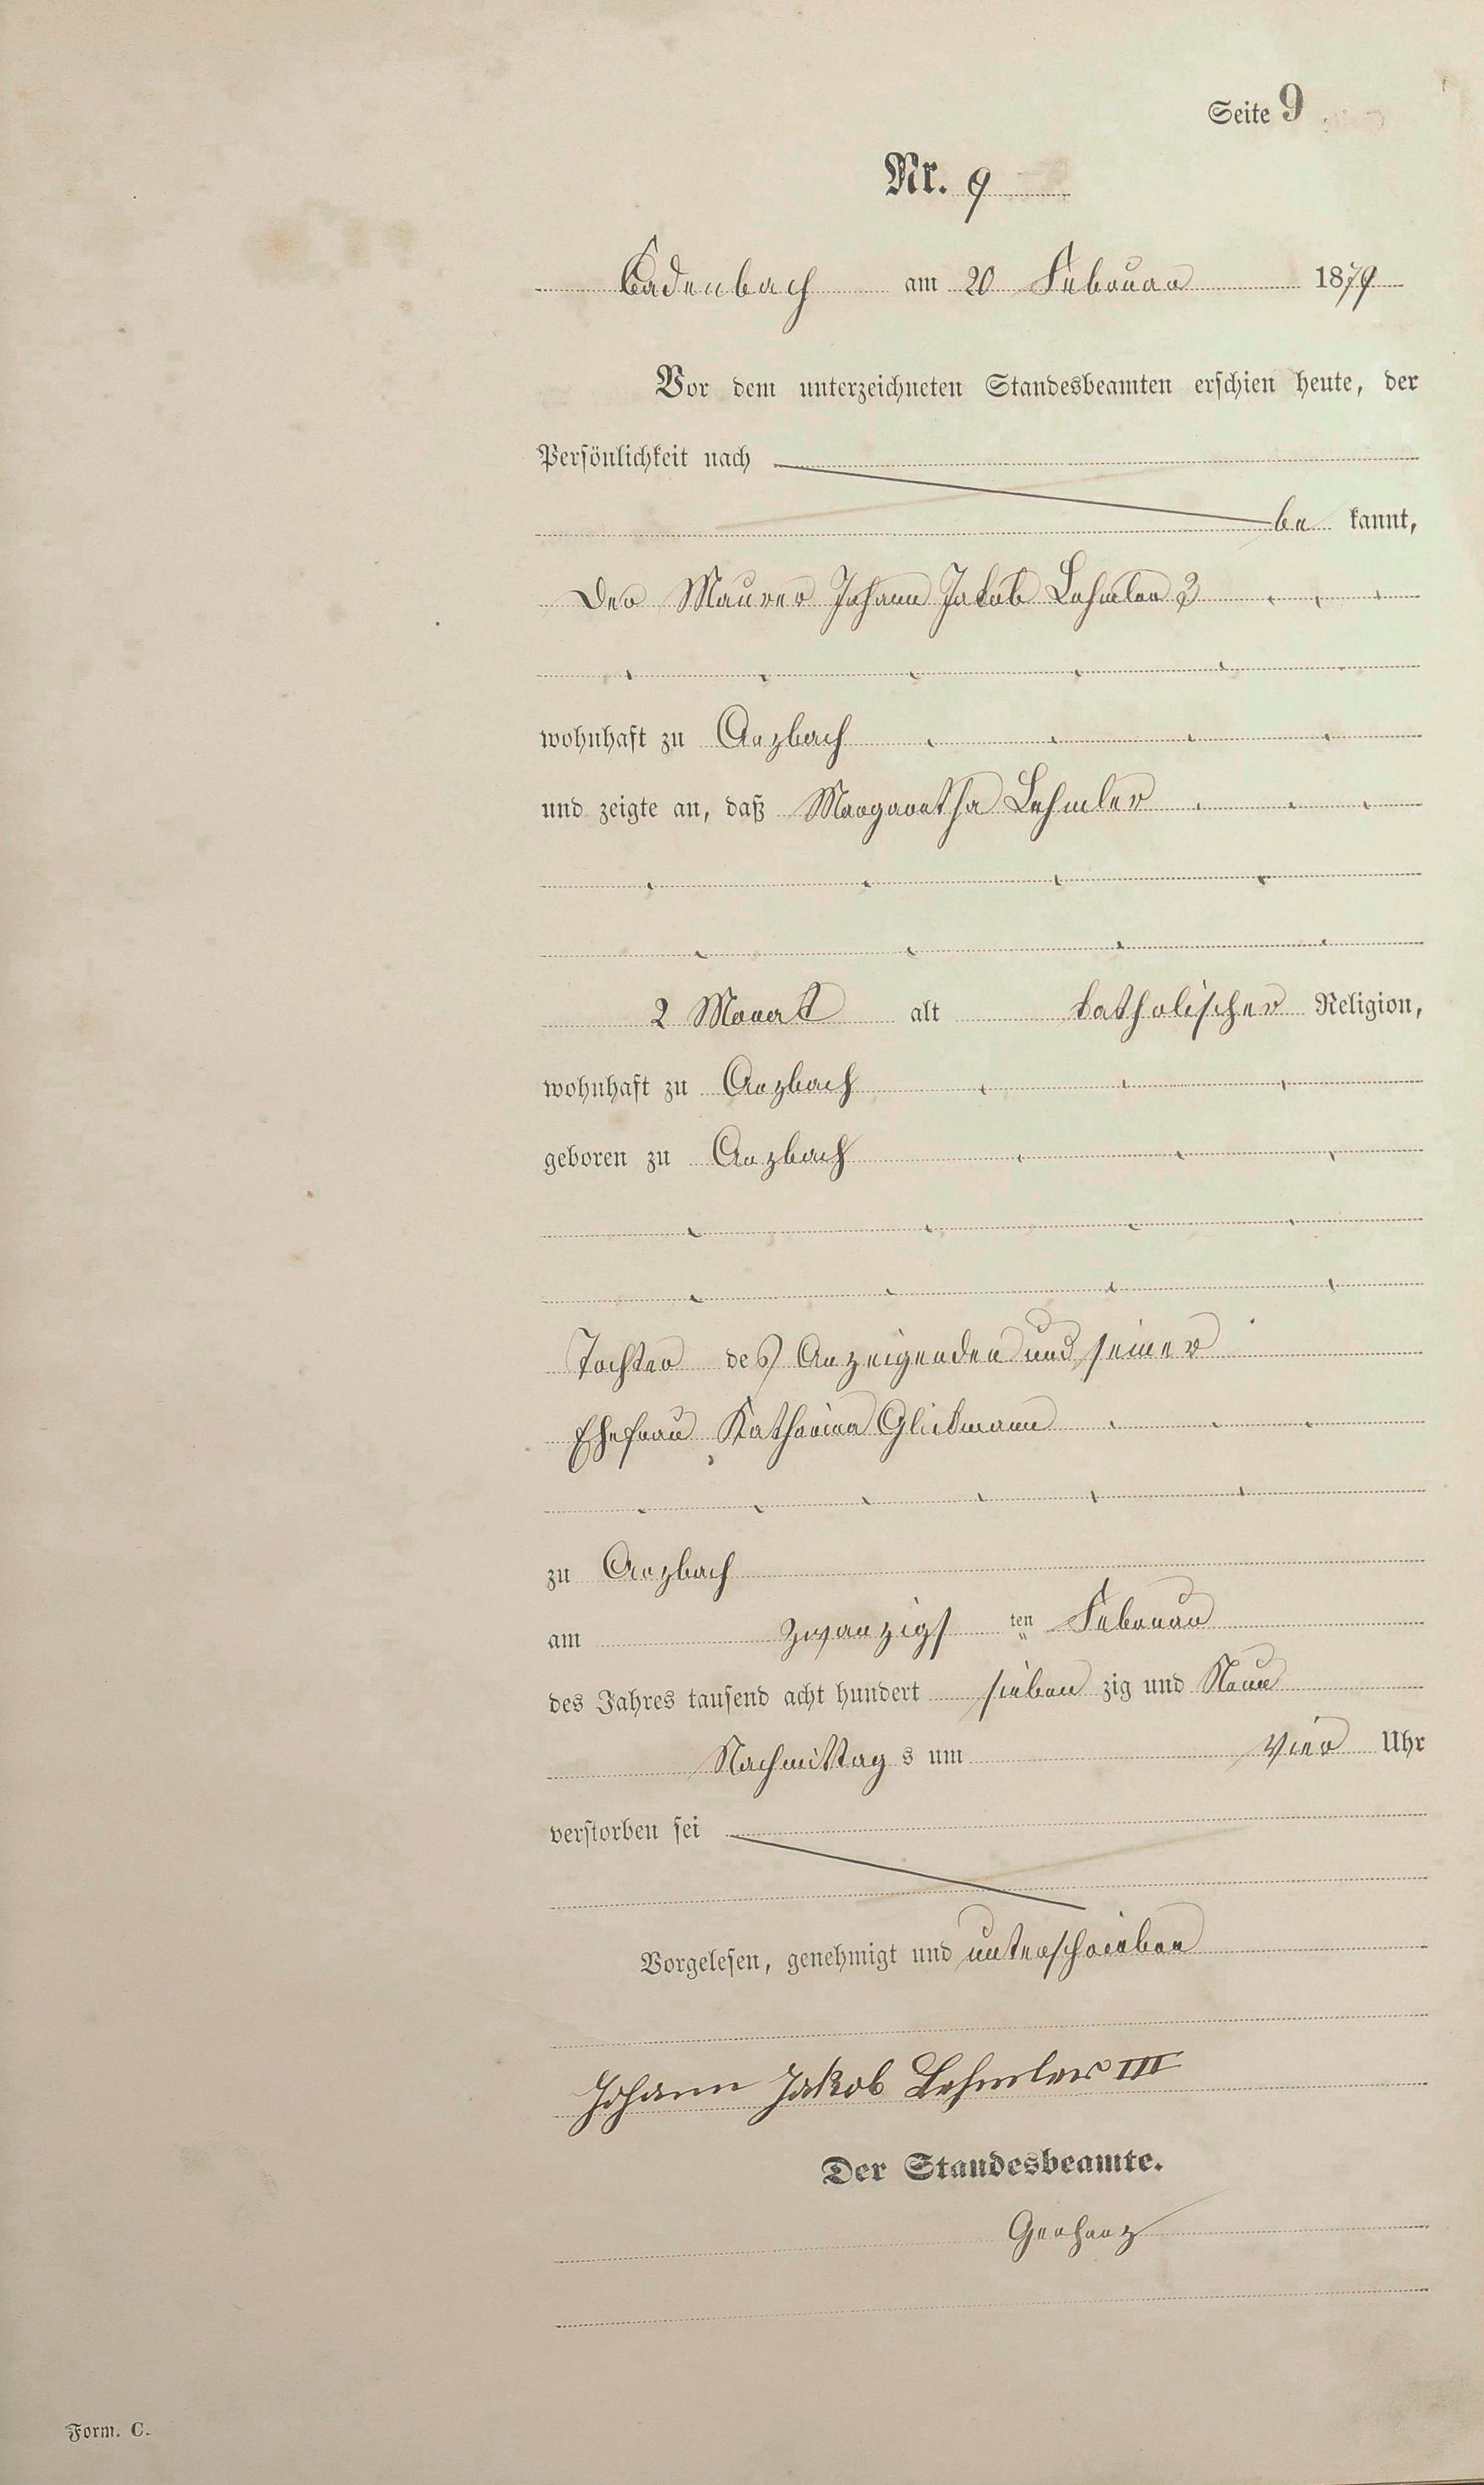 Seite 9
Nr. 9
Cadenbach am 20 Februar 1879
Vor dem unterzeichneten Standesbeamten erschien heute, der
Persönlichkeit nach
be kannt,
Der Maurer Johann Jakob Lehmler 3
wohnhaft zu Arzbach
und zeigte an, daß Margaretha Lehmler
2 Monat alt katholischer Religion,
wohnhaft zu Arzbach
geboren zu Arzbach
Tochter des Anzeigenden und seiner
Ehefrau Katharina Glickmann
zu Arzbach
am zwanzigs ten Februar
des Jahres tausend acht hundert sieben zig und Neun
Nachmittag s um Vier Uhr
verstorben sei
Vorgelesen, genehmigt und unterschrieben
Johann Jakob Lehmler III
Der Standesbeamte.
Gerharz
Form. C.